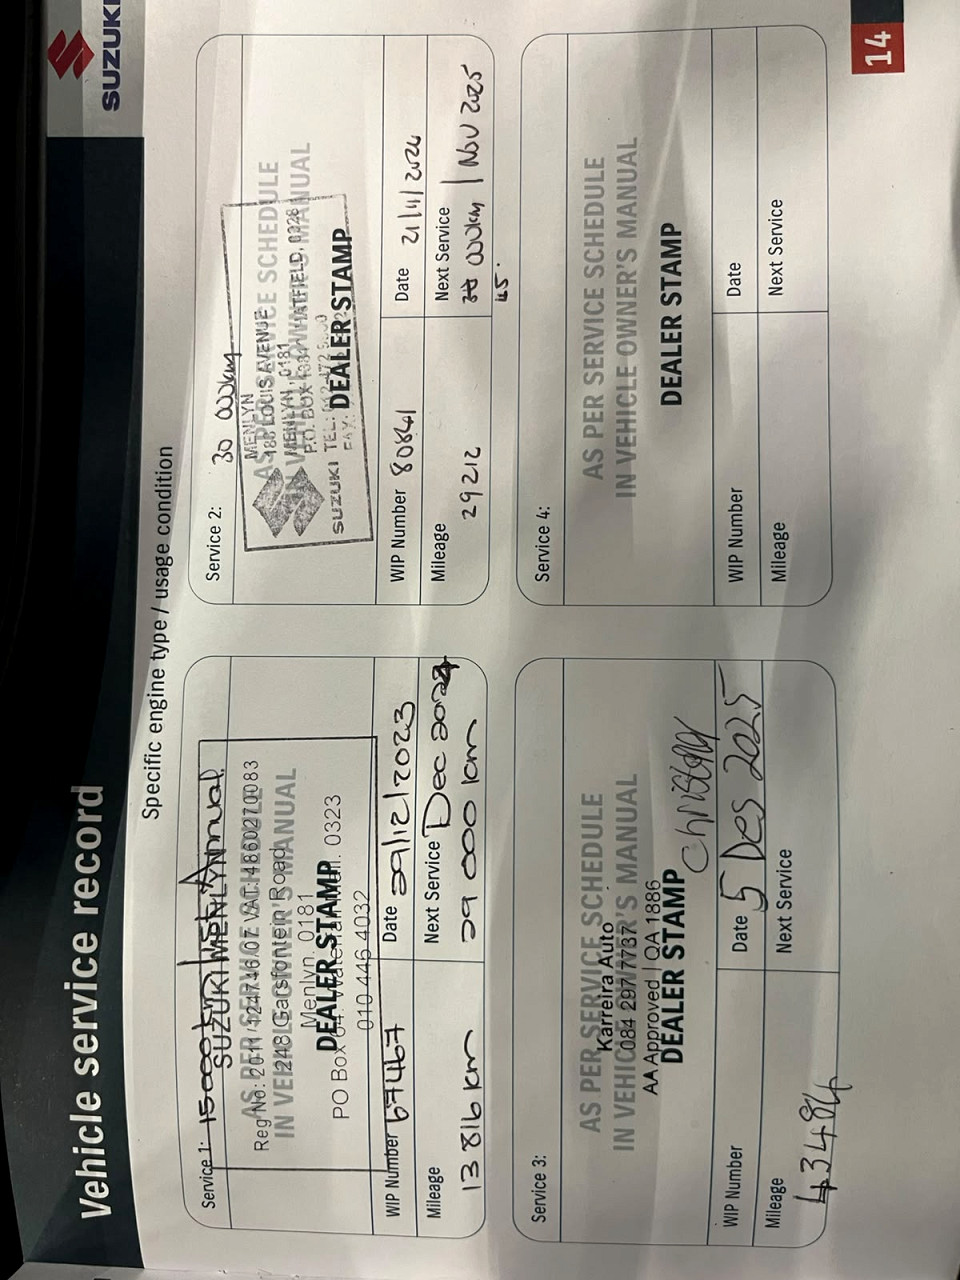 Vehicle service record
SUZUKI
Specific engine type / usage condition
Service 1: 15000km / 1st Annual
SUZUKI MENLYN
AS PER SERVICE SCHEDULE
Reg No: 2011/124746/07 VAT: 4860270083
IN VEHICLE OWNER'S MANUAL
248 Garsfontein Road
Menlyn. 0181
DEALER STAMP
PO Box 0323
010 446 4032
WIP Number 67467
Date 29/12/2023
Mileage
13 816 km
Next Service Dec 2024
29 000 km
Service 2: 30 000km
MENLYN
AS PER SERVICE SCHEDULE
188 LOUIS AVENUE
IN VEHICLE OWNER'S MANUAL
MENLYN, 0181
P.O. BOX HATFIELD, 0028
SUZUKI TEL:
DEALER STAMP
FAX:
WIP Number 80841
Date 21/11/2024
Mileage
29212
Next Service
000km | Nov 2025
45.
Service 3:
AS PER SERVICE SCHEDULE
Karreira Auto
IN VEHICLE OWNER'S MANUAL
084 297 7737
AA Approved | QA 1886
DEALER STAMP
WIP Number
Date 5 Des 2025
Mileage
43484
Next Service
Service 4:
AS PER SERVICE SCHEDULE
IN VEHICLE OWNER'S MANUAL
DEALER STAMP
WIP Number
Date
Mileage
Next Service
14